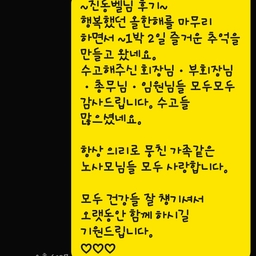 ~진동벨님 후기~
행복했던 올한해를 마무리
하면서 ~1박 2일 즐거운 추억을
만들고 왔네요.
수고해주신 회장님 • 부회장님
• 총무님 • 임원님들 모두모두
감사드립니다. 수고들
많으셨네요.

항상 의리로 뭉친 가족같은
노사모님들 모두 사랑합니다.

모두 건강들 잘 챙기셔서
오랫동안 함께 하시길
기원드립니다.
♡♡♡